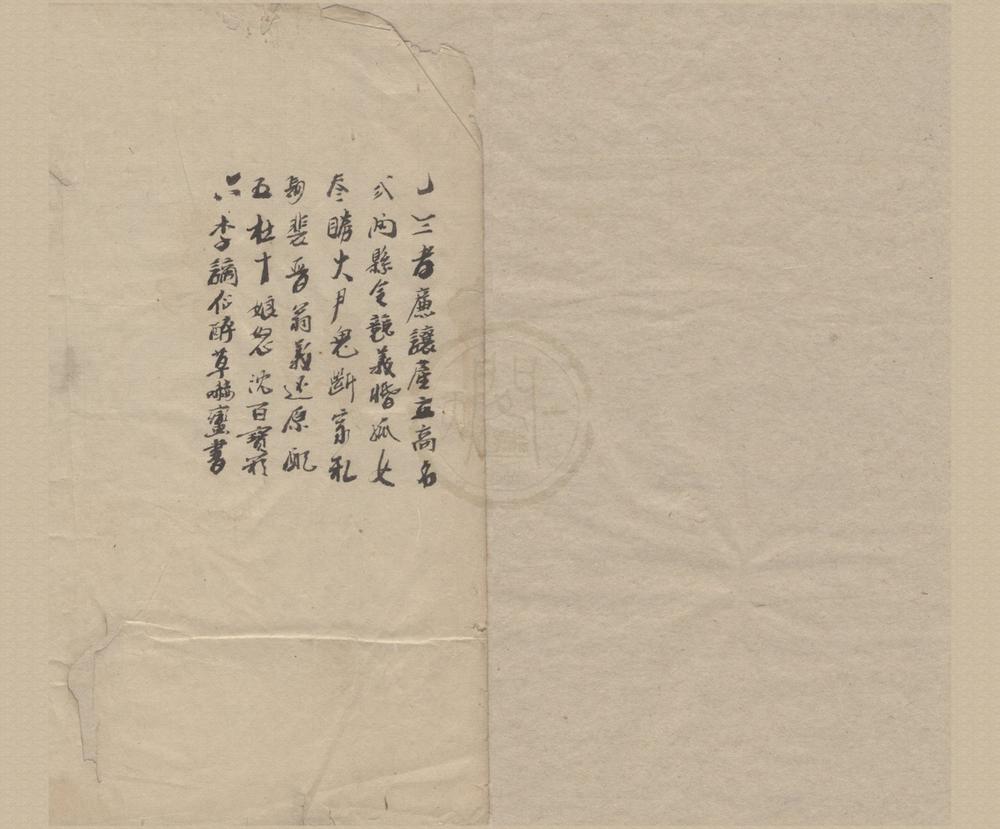 三孝廉讓產立高名
弍兩縣令競義婚孤女
叁滕大尹鬼斷家私
裴晉翁義还原配
五杜十娘怒沈百寶箱
六李謫仙醉草嚇蠻書